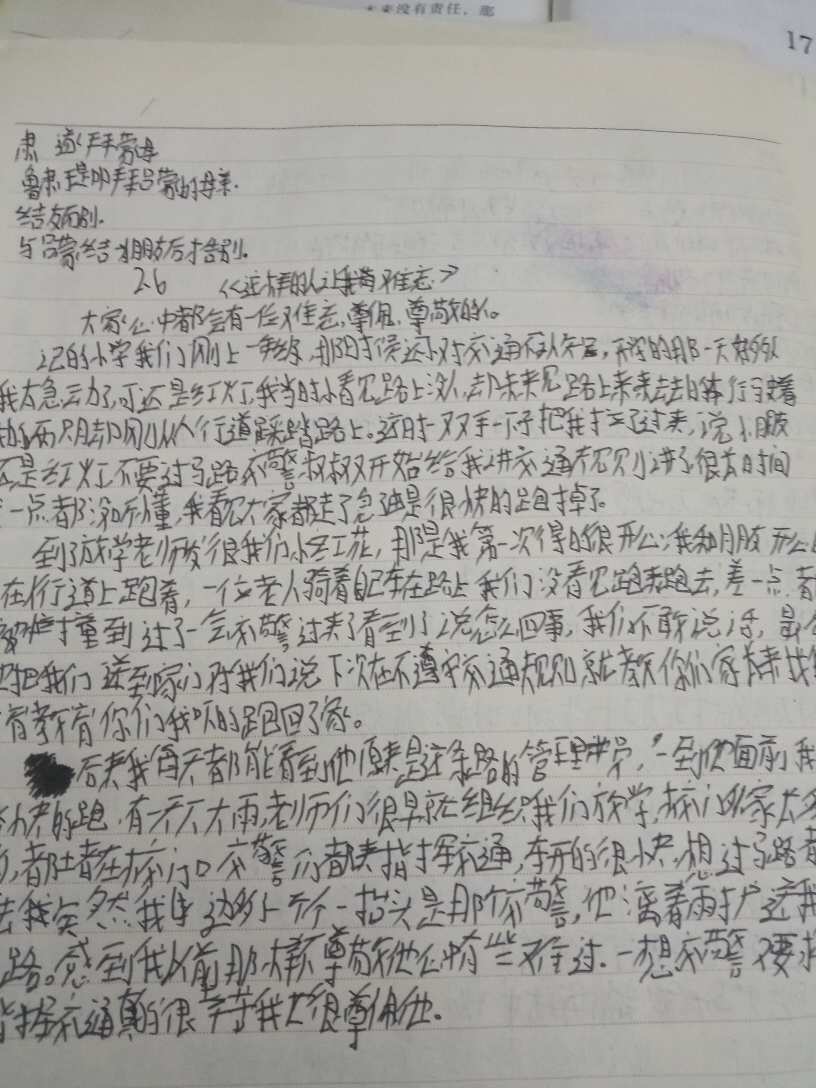 未来没有责任，那
17
肃遂拜蒙母
鲁肃于是即拜吕蒙的母亲.
结友而别.
与吕蒙结为朋友后才告别。
26 《这样的人让我难忘》
大家心中都会有一位难忘,尊佩、尊敬的人。
记的小学我们刚上一年级,那时候还小对交通不认知,放学的那一天
我太急云力了,可还是红灯,我当时小看见路上没人,却未来见路上来来去去自
的两只脚从人行道踩踏路上。这时一双手一下子把我拉了过来,说小朋友
还是红灯不要过马路交警叔叔开始给我讲交通规则讲了很长时间
一点都没听懂,我看见大家都走了急迪是很快的跑掉了。
到了放学老师发很我们小红花,那是我第一次得的很开心,我和朋友开心
在人行道上跑着,一位老人骑着自己车在路上我们没看见跑来跑去,差一点
撞到过了一会交警过来了看到了说怎么回事,我们不敢说话,最
把我们送到家门对我们说下次在不遵守交通规则就教你们家长来找
有教育你们我吓的跑回了家。
后来我每天都能看到他原来是这条路的管理人员,一到他面前我
的跑,有一天下大雨,老师们很早就组织我们放学,校门口家长
都堵在校门口交警们都来指挥交通,车开的很快,想过马路
我突然我身边多了一个伞一抬头是那个交警,他打着雨伞送我
路。感到我以前那样不尊敬他心中有些难过.一想交警要
指挥交通真的很辛苦我也很尊佩他.